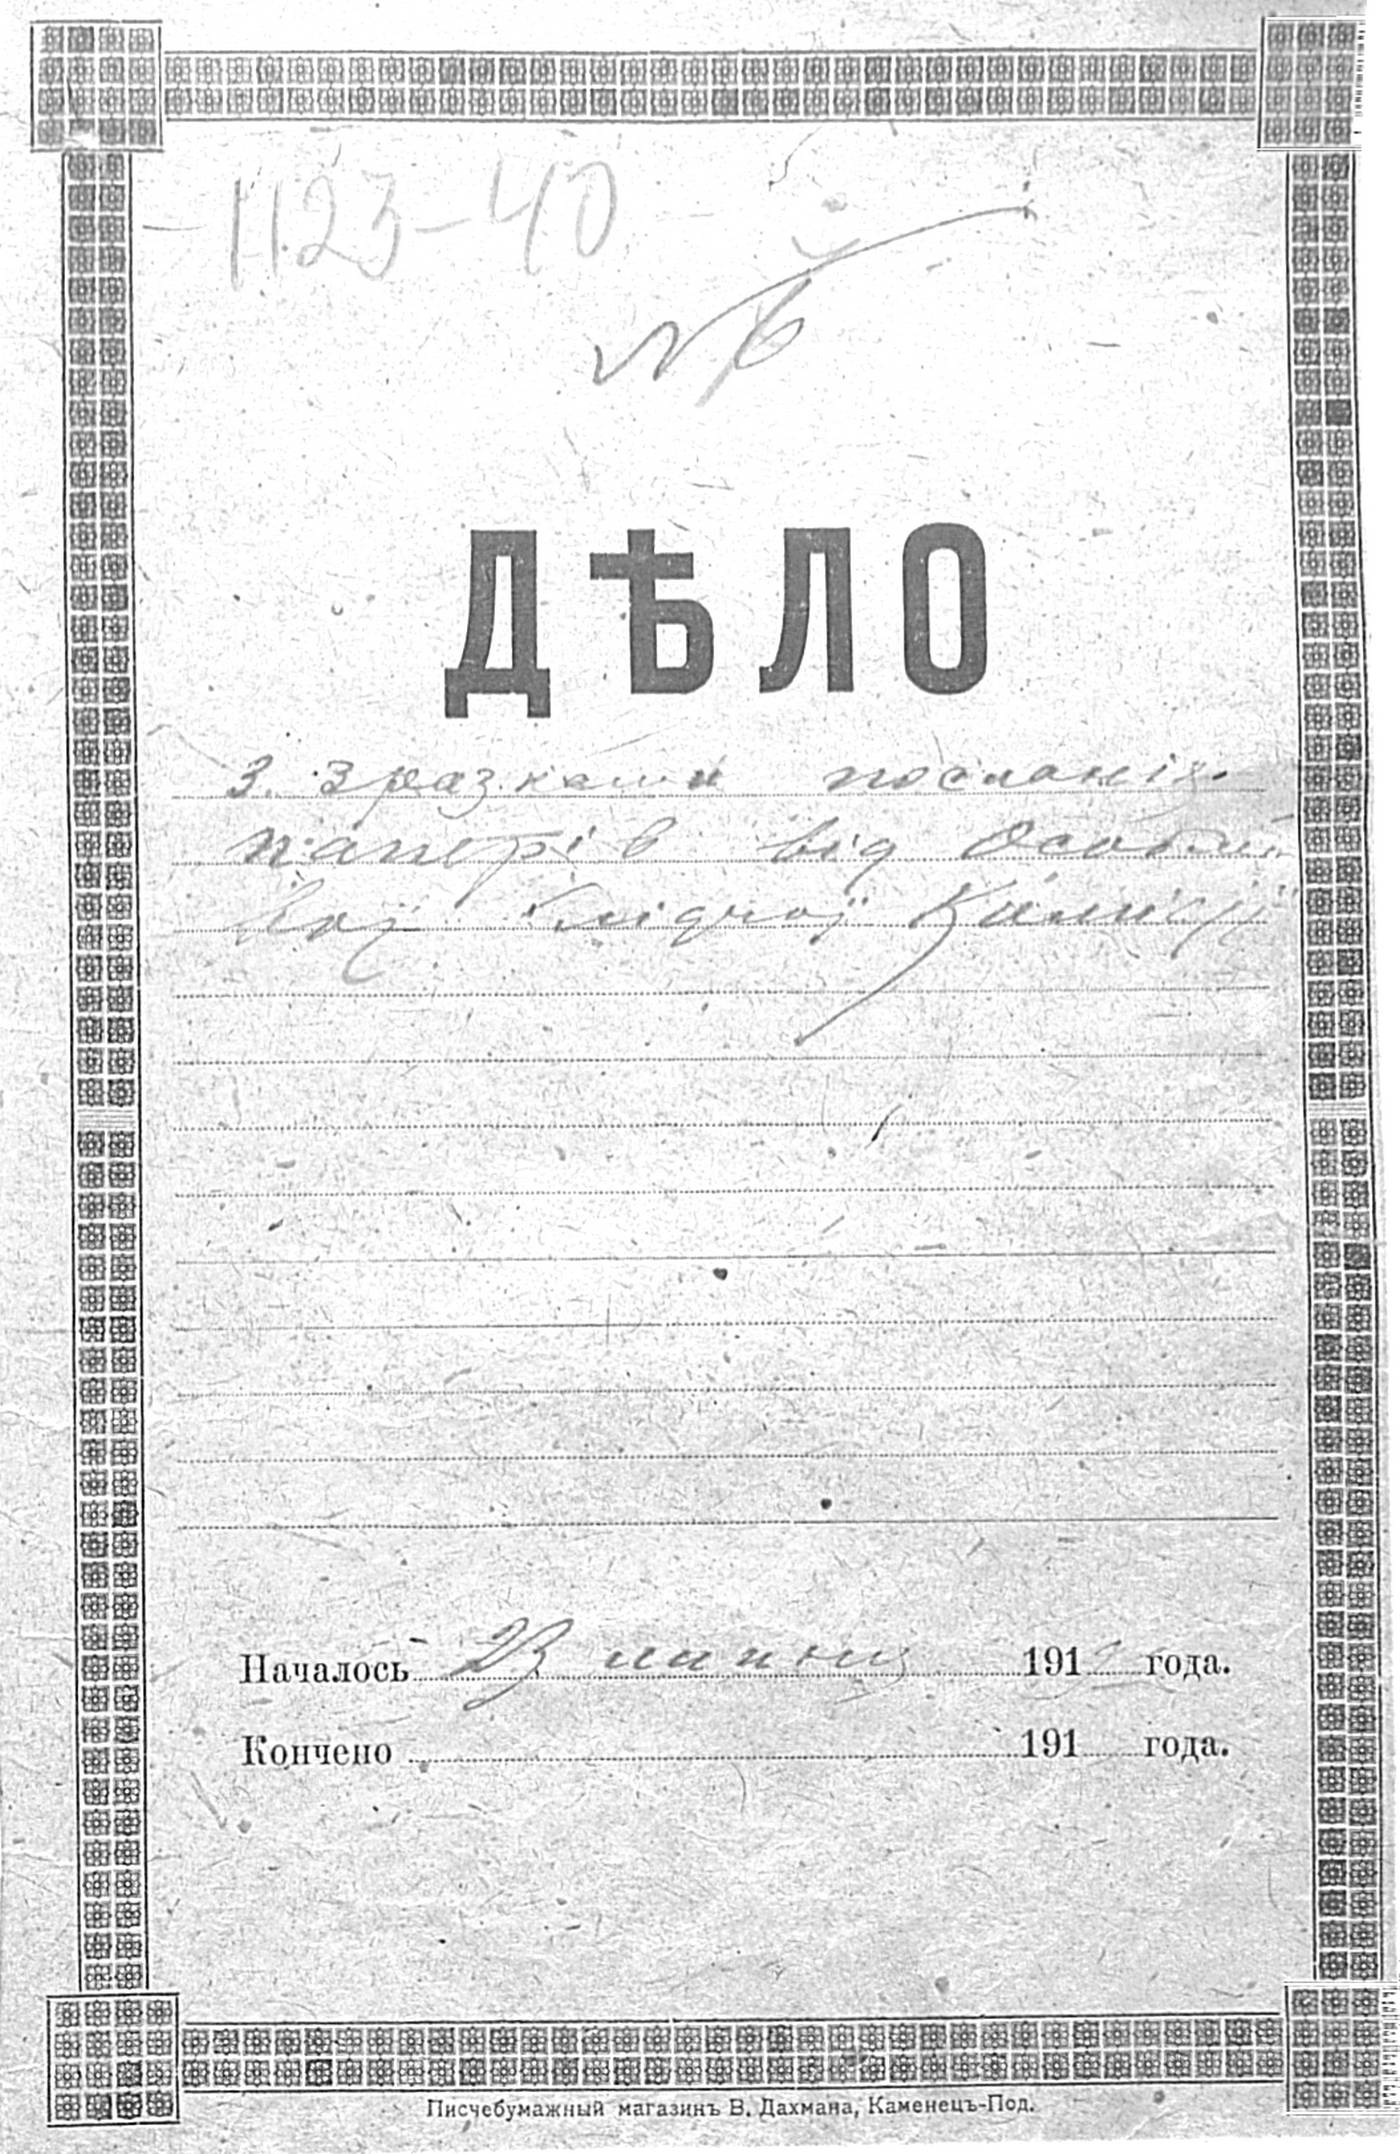 1123-40
№ 6
ДѢЛО
З зразками посланія
паперів від Особли
вої Слідчої Комісії
Началось 23 липня 1919 года.
Кончено 191 года.
Писчебумажный магазинъ В. Дахмана, Каменецъ-Под.